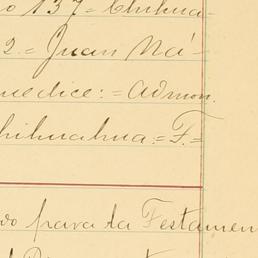 o 137= Chihua-
2.= Juan Ná-
uedice:= Admon.
Chihuahua.= F.=
vo para la Testamen